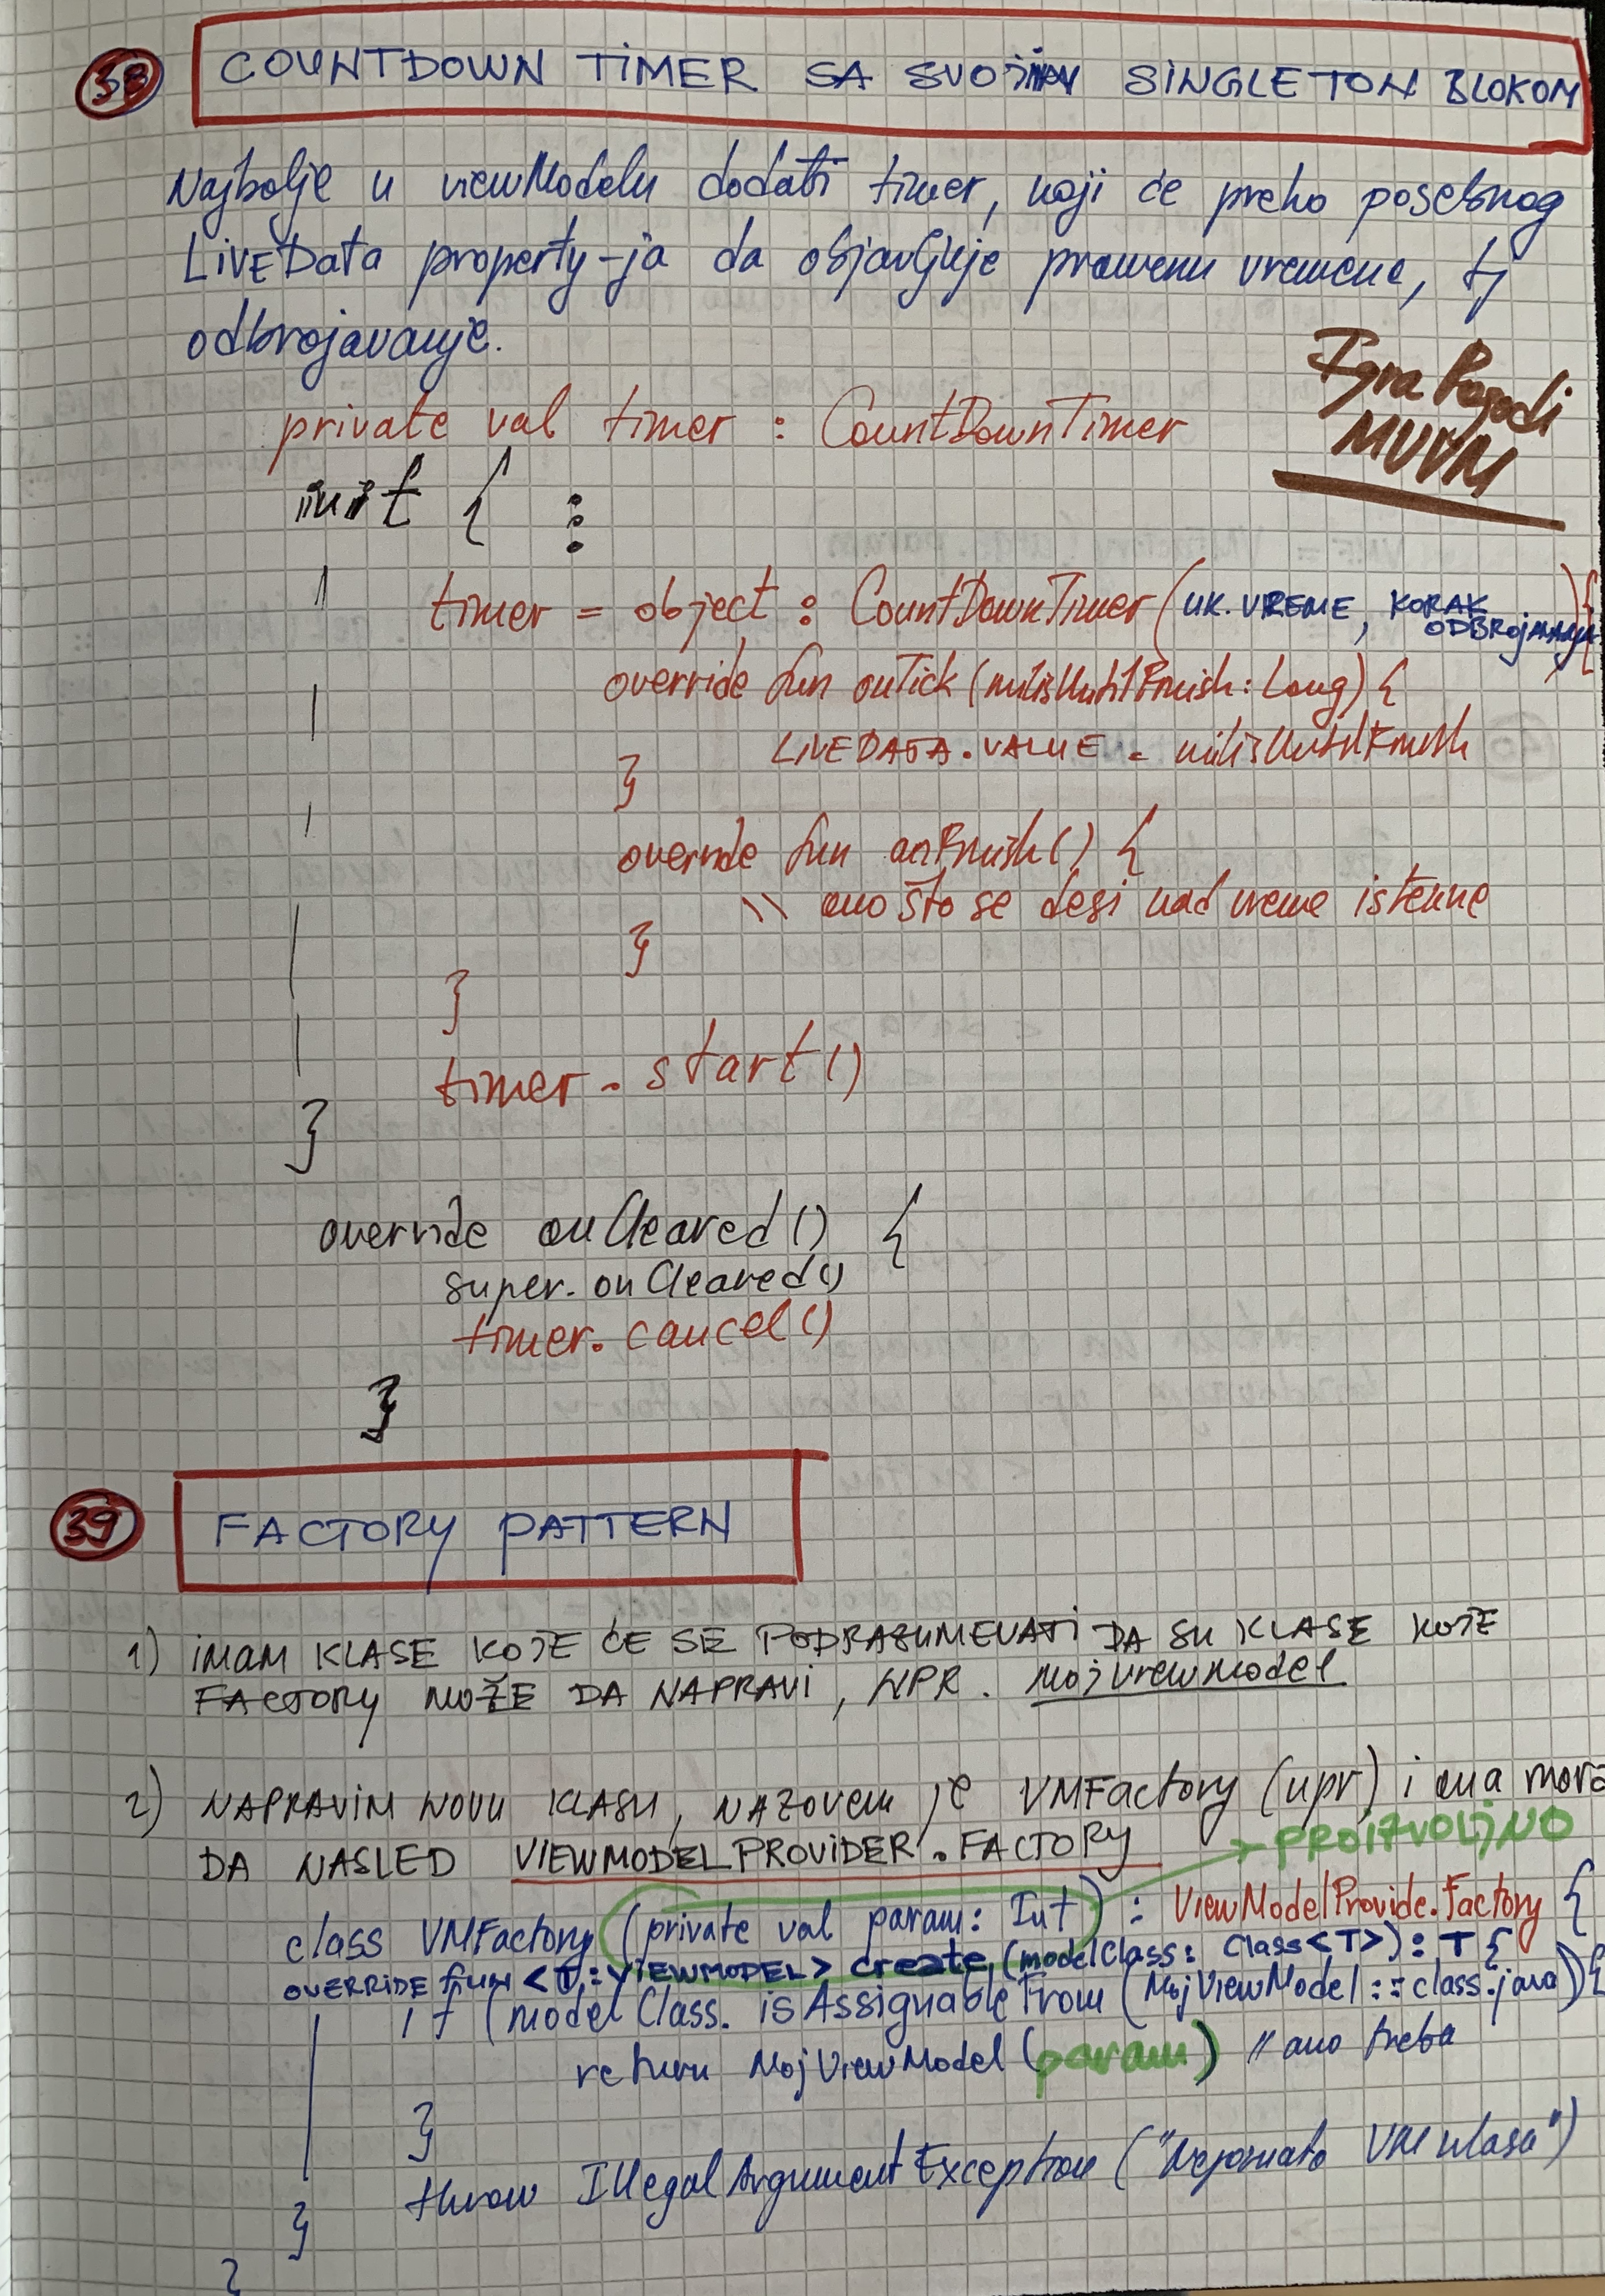 38 COUNTDOWN TIMER SA SVOJIM SINGLETON BLOKOM
Najbolje u viewModelu dodati timer, koji će preko posebnog
LIVEData property-ja da objavljuje promenu vremena, tj
odbrojavanje.
Igra Pogodi
MVVM
private val timer : CountDownTimer
init { ⋮
timer = object : CountDownTimer (UK. VREME, KORAK ODBROJAVANJA) {
override fun onTick (milisUntilFinish: Long) {
LIVEDATA.VALUE = milisUntilFinish
}
override fun onFinish() {
\\ ono što se desi kad vreme istekne
}
}
timer.start()
}
override onCleared() {
super.onCleared()
timer.cancel()
}
39 FACTORY PATTERN
1) IMAM KLASE KOJE ĆE SE PODRAZUMEVATI DA SU KLASE KOJE
FACTORY MOŽE DA NAPRAVI, NPR. MojViewModel
2) NAPRAVIM NOVU KLASU, NAZOVEM JE VMFactory (npr) i ona mora
DA NASLED VIEWMODELPROVIDER.FACTORY
PROIZVOLJNO
class VMFactory (private val param: Int) : ViewModelProvide.Factory {
OVERRIDE fun <T: VIEWMODEL> create (modelClass: Class<T>): T {
if (modelClass.isAssignableFrom (MojViewModel::class.java)) {
return MojViewModel (param) // ono treba
}
throw IllegalArgumentException ("Nepoznata VM klasa")
}
}